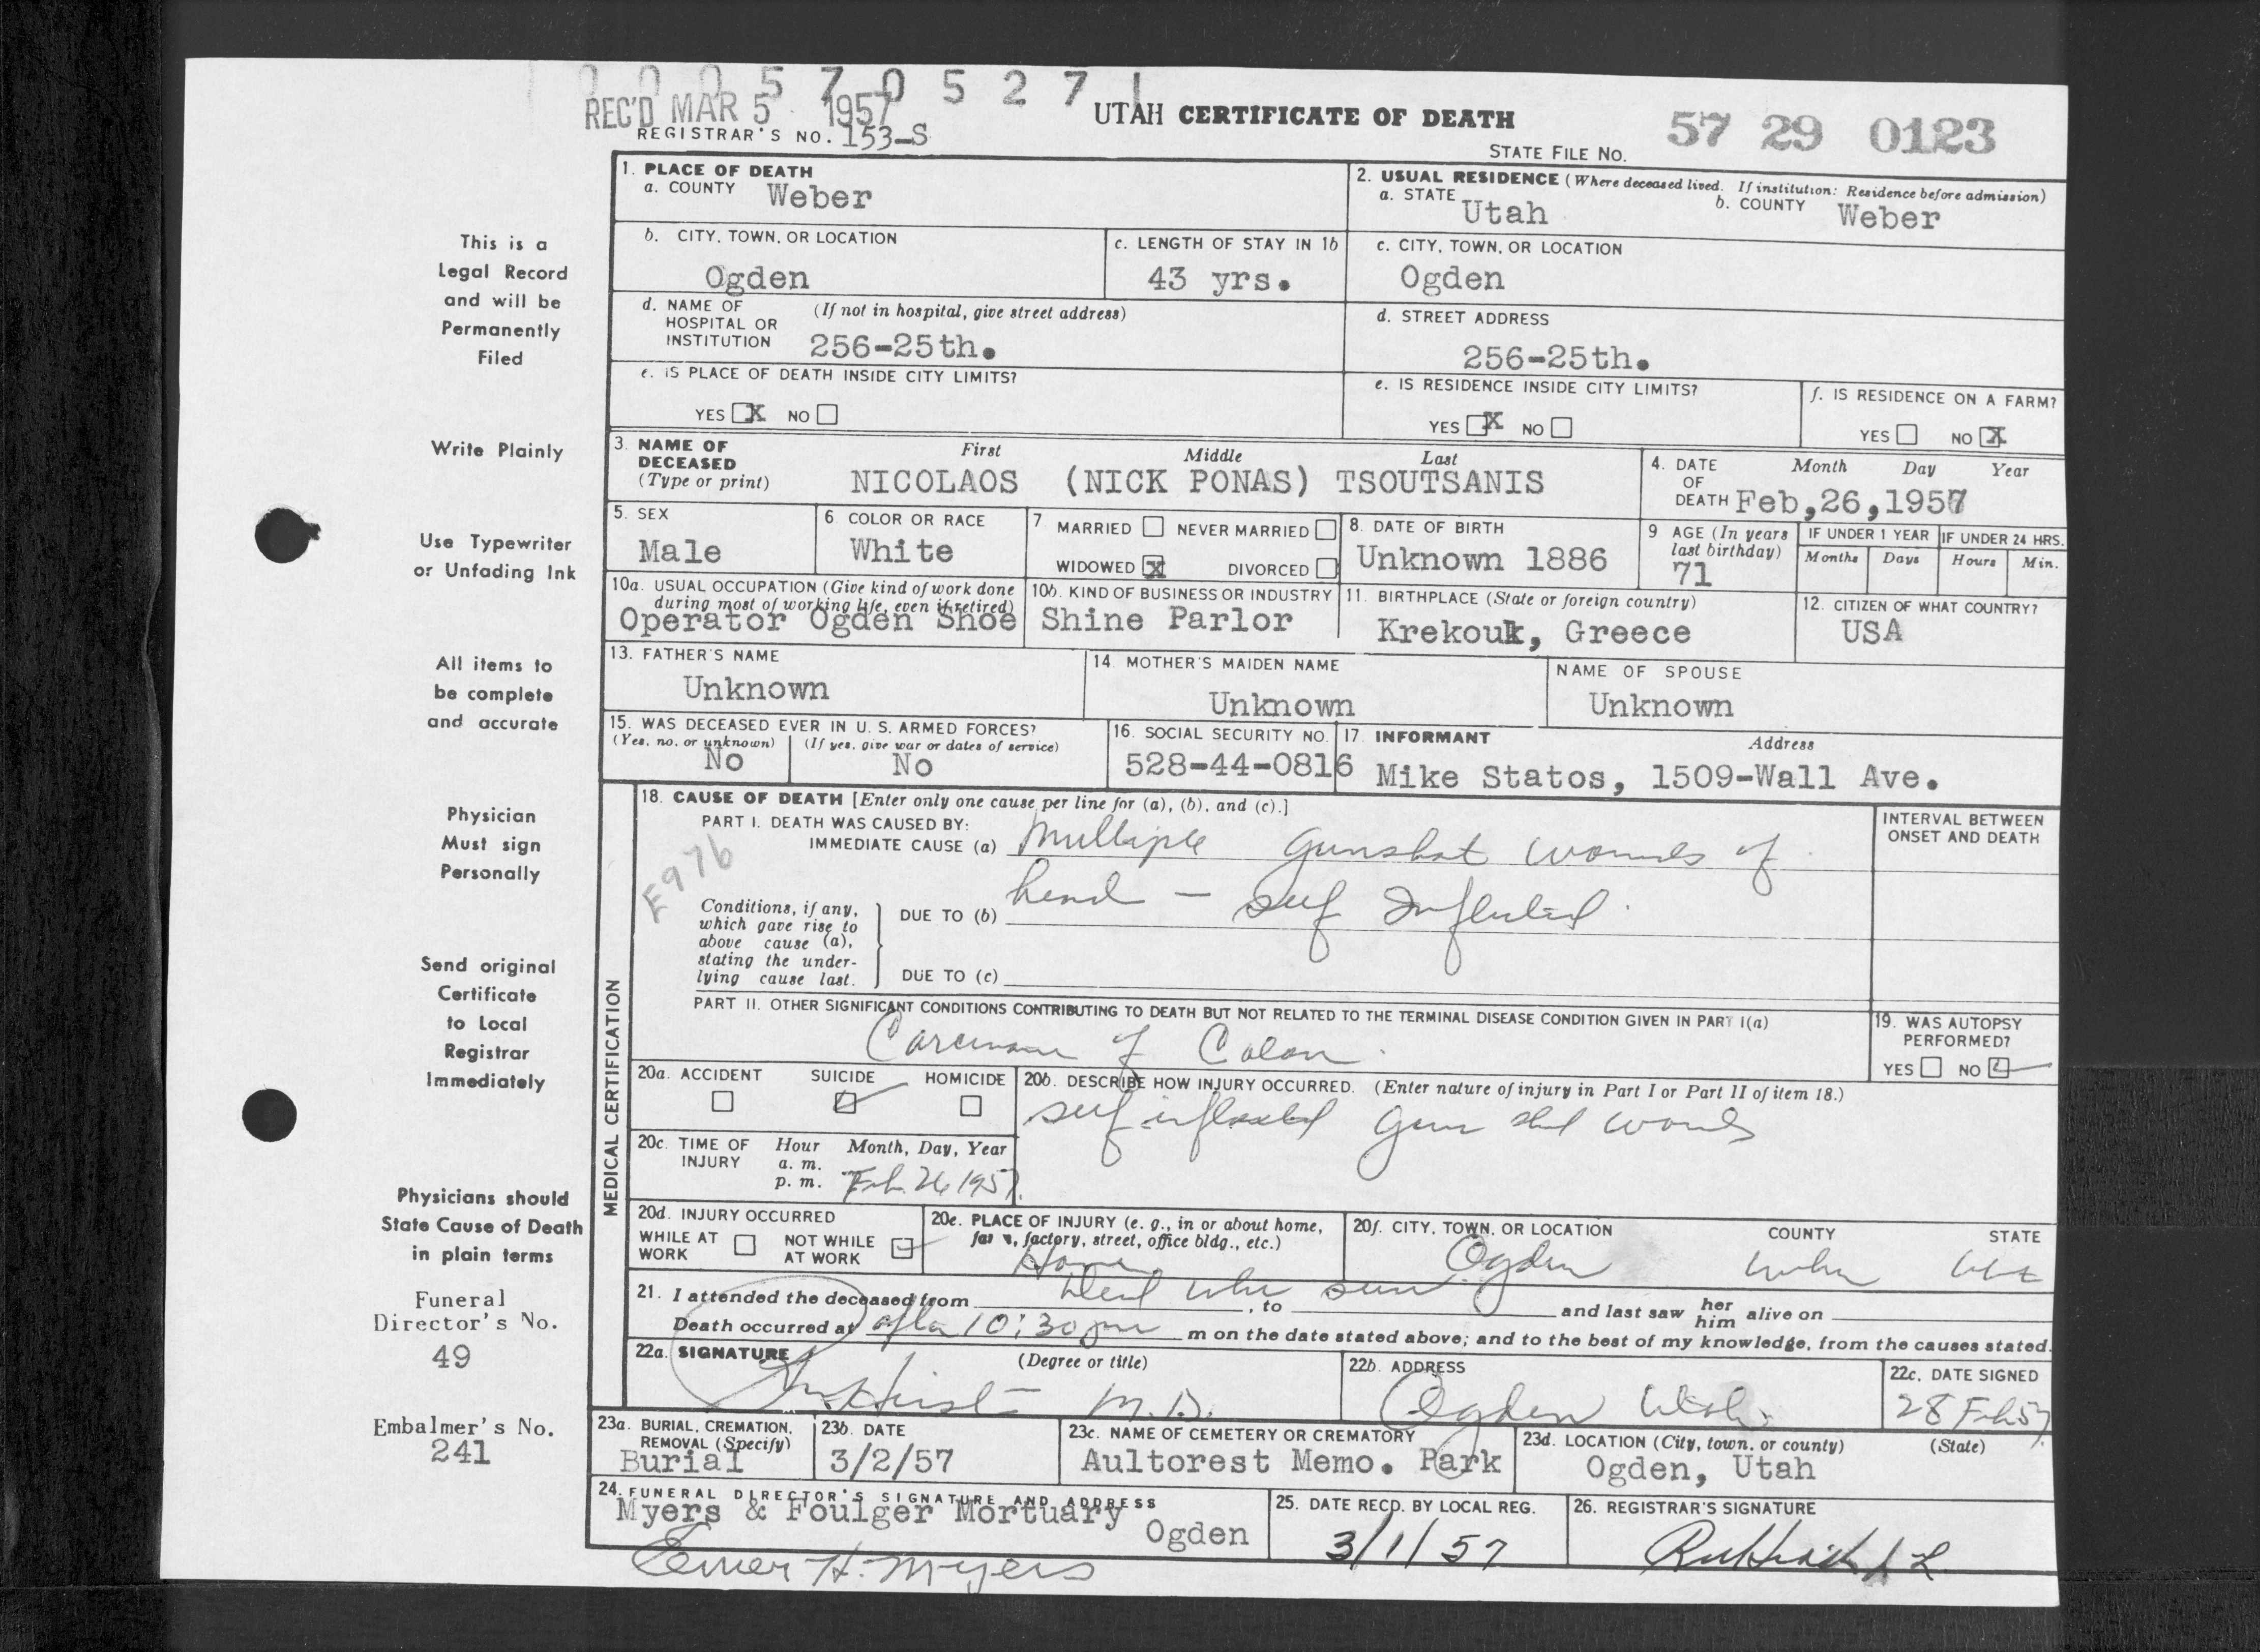 0 0 0 5 7 0 5 2 7 1
REC'D MAR 5 1957
REGISTRAR'S NO. 153-S
UTAH CERTIFICATE OF DEATH
STATE FILE NO. 57 29 0123
This is a
Legal Record
and will be
Permanently
Filed
Write Plainly
Use Typewriter
or Unfading Ink
All items to
be complete
and accurate
Physician
Must sign
Personally
Send original
Certificate
to Local
Registrar
Immediately
Physicians should
State Cause of Death
in plain terms
Funeral
Director's No.
49
Embalmer's No.
241
1. PLACE OF DEATH
a. COUNTY Weber
2. USUAL RESIDENCE (Where deceased lived. If institution: Residence before admission)
a. STATE Utah b. COUNTY Weber
b. CITY, TOWN, OR LOCATION
Ogden
c. LENGTH OF STAY IN 1b
43 yrs.
c. CITY, TOWN, OR LOCATION
Ogden
d. NAME OF HOSPITAL OR INSTITUTION (If not in hospital, give street address)
256-25th.
d. STREET ADDRESS
256-25th.
e. IS PLACE OF DEATH INSIDE CITY LIMITS?
YES X NO
e. IS RESIDENCE INSIDE CITY LIMITS?
YES X NO
f. IS RESIDENCE ON A FARM?
YES NO X
3. NAME OF DECEASED (Type or print)
First Middle Last
NICOLAOS (NICK PONAS) TSOUTSANIS
4. DATE OF DEATH Month Day Year
Feb,26,1957
5. SEX
Male
6. COLOR OR RACE
White
7. MARRIED NEVER MARRIED
WIDOWED X DIVORCED
8. DATE OF BIRTH
Unknown 1886
9. AGE (In years last birthday)
71
IF UNDER 1 YEAR
Months Days
IF UNDER 24 HRS.
Hours Min.
10a. USUAL OCCUPATION (Give kind of work done during most of working life, even if retired)
Operator Ogden Shoe
10b. KIND OF BUSINESS OR INDUSTRY
Shine Parlor
11. BIRTHPLACE (State or foreign country)
Krekouk, Greece
12. CITIZEN OF WHAT COUNTRY?
USA
13. FATHER'S NAME
Unknown
14. MOTHER'S MAIDEN NAME
Unknown
NAME OF SPOUSE
Unknown
15. WAS DECEASED EVER IN U. S. ARMED FORCES?
(Yes, no, or unknown) (If yes, give war or dates of service)
No No
16. SOCIAL SECURITY NO.
528-44-0816
17. INFORMANT Address
Mike Statos, 1509-Wall Ave.
MEDICAL CERTIFICATION
18. CAUSE OF DEATH [Enter only one cause per line for (a), (b), and (c).]
PART I. DEATH WAS CAUSED BY:
IMMEDIATE CAUSE (a) Multiple Gunshot wounds of
E976
Conditions, if any, which gave rise to above cause (a), stating the underlying cause last.
DUE TO (b) head - self Inflicted.
DUE TO (c)
INTERVAL BETWEEN ONSET AND DEATH
PART II. OTHER SIGNIFICANT CONDITIONS CONTRIBUTING TO DEATH BUT NOT RELATED TO THE TERMINAL DISEASE CONDITION GIVEN IN PART I(a)
Carcinoma of Colon.
19. WAS AUTOPSY PERFORMED?
YES NO
20a. ACCIDENT SUICIDE HOMICIDE
20b. DESCRIBE HOW INJURY OCCURRED. (Enter nature of injury in Part I or Part II of item 18.)
self inflicted gun shot wounds
20c. TIME OF INJURY Hour Month, Day, Year
a. m.
p. m. Feb. 26 1957.
20d. INJURY OCCURRED
WHILE AT WORK NOT WHILE AT WORK
20e. PLACE OF INJURY (e. g., in or about home, farm, factory, street, office bldg., etc.)
Home
20f. CITY, TOWN, OR LOCATION COUNTY STATE
Ogden Weber Utah
21. I attended the deceased from Dead when seen, to and last saw her him alive on
Death occurred at after 10:30 pm m on the date stated above; and to the best of my knowledge, from the causes stated.
22a. SIGNATURE (Degree or title)
M.D.
22b. ADDRESS
Ogden Utah.
22c. DATE SIGNED
28 Feb 57
23a. BURIAL, CREMATION, REMOVAL (Specify)
Burial
23b. DATE
3/2/57
23c. NAME OF CEMETERY OR CREMATORY
Aultorest Memo. Park
23d. LOCATION (City, town, or county) (State)
Ogden, Utah
24. FUNERAL DIRECTOR'S SIGNATURE AND ADDRESS
Myers & Foulger Mortuary Ogden
Elmer H. Myers
25. DATE RECD. BY LOCAL REG.
3/1/57
26. REGISTRAR'S SIGNATURE